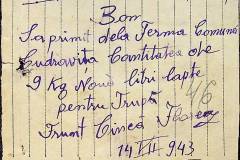 Bom
Sa primit dela Ferma Comuna
Cudravita Cantitatea de
9 Kg Nouă litri lapte
pentru Trupă
Frunt Cincă
14 VII 943